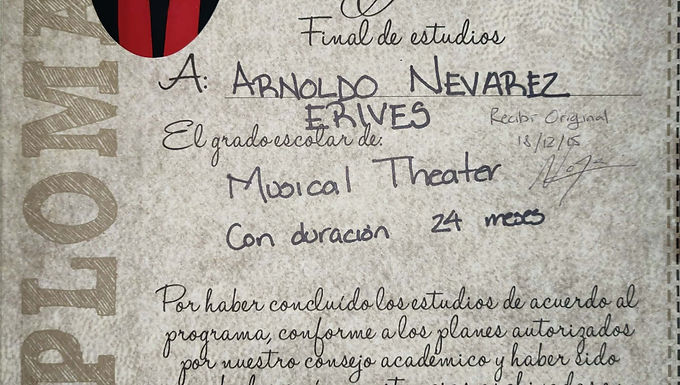 DIPLOMA
Final de estudios
A: ARNOLDO NEVAREZ
ERIVES
Recibi Original
El grado escolar de:
18/12/15
Musical Theater
Con duración 24 meses
Por haber concluído los estudios de acuerdo al
programa, conforme a los planes autorizados
por nuestro consejo académico y haber sido